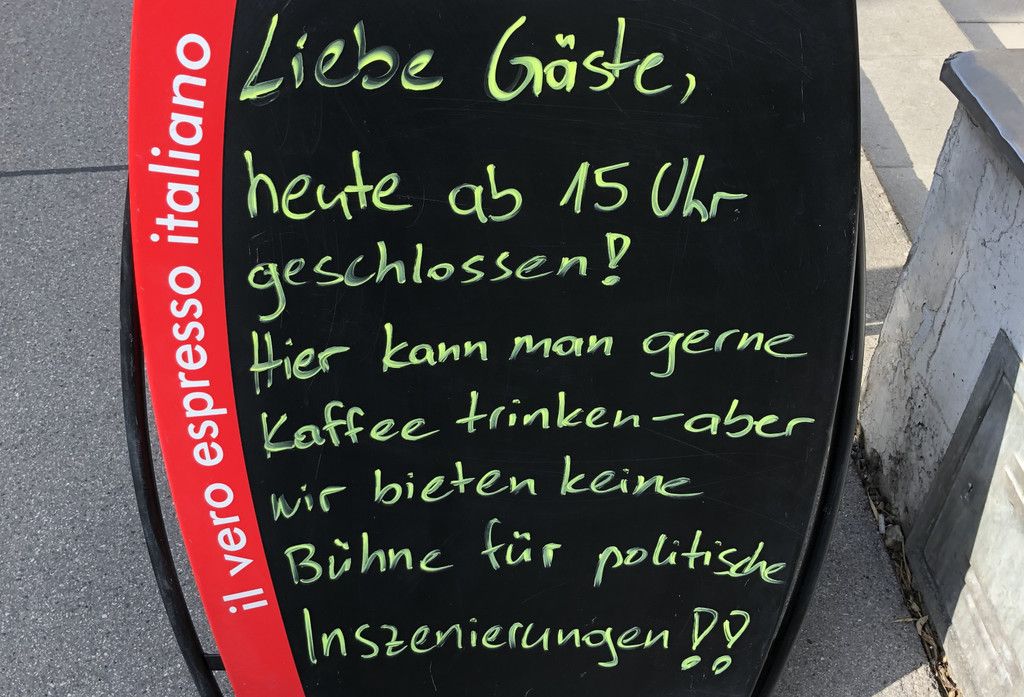 il vero espresso italiano
Liebe Gäste,
heute ab 15 Uhr
geschlossen!
Hier kann man gerne
Kaffee trinken - aber
wir bieten keine
Bühne für politische
Inszenierungen!!